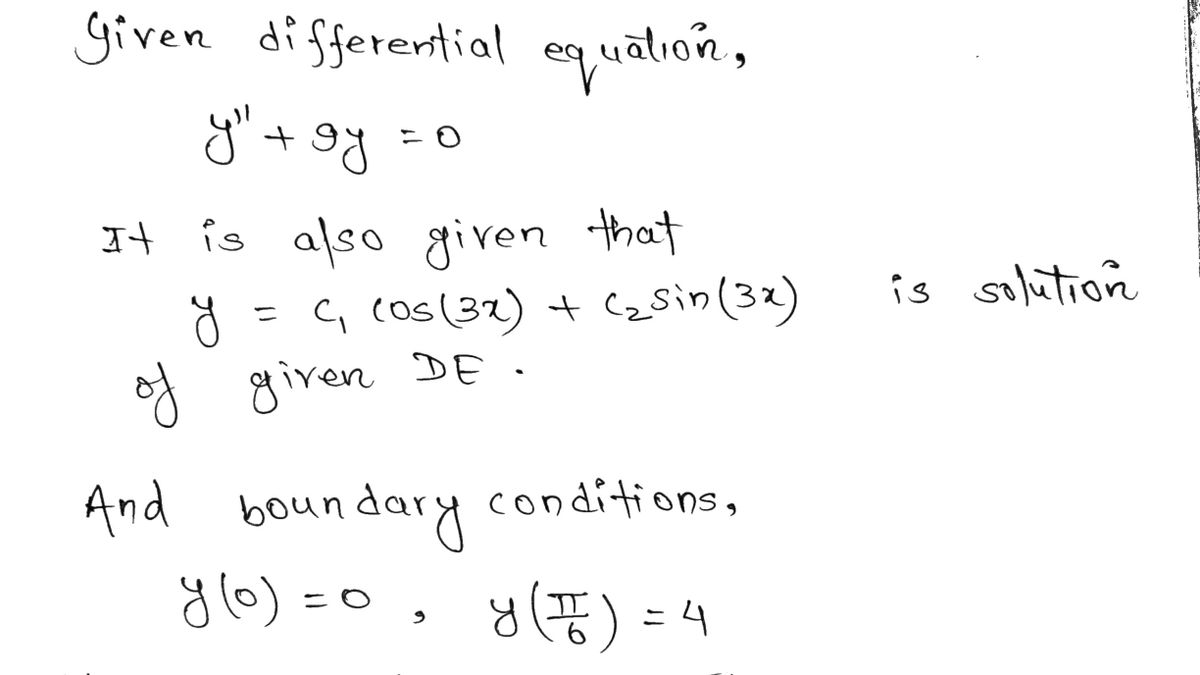 Given differential equation,
y'' + 9y = 0
It is also given that
y = C₁ cos(3x) + C₂ sin(3x) is solution
of given DE .
And boundary conditions,
y(0) = 0 , y(π/6) = 4